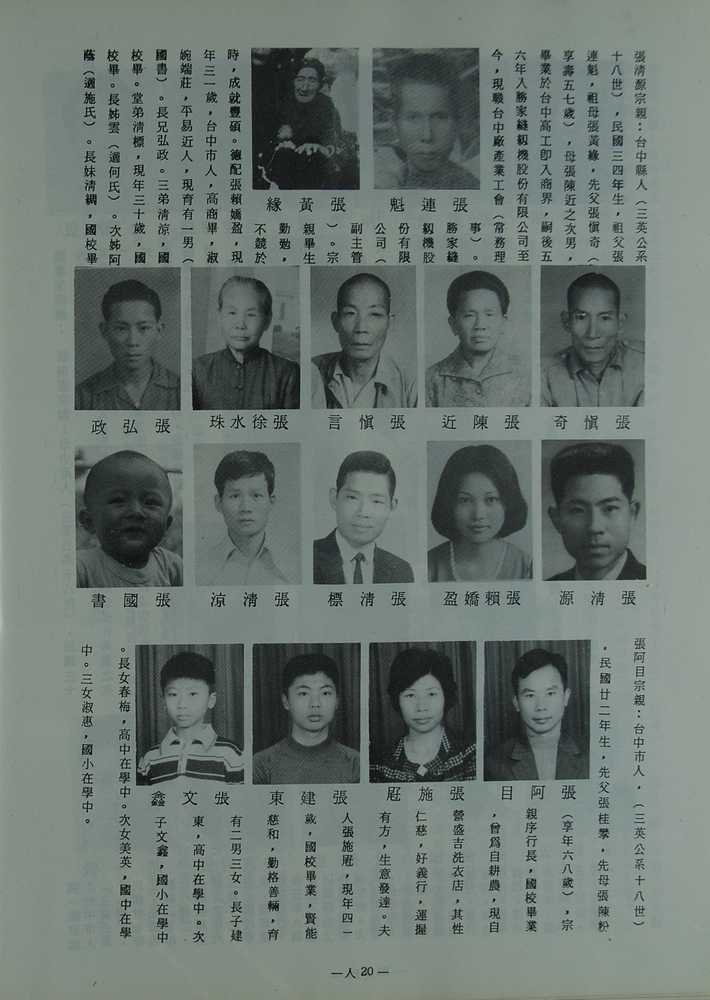 張清源宗親：台中縣人（三英公系
十八世），民國三四年生，祖父張
連魁，祖母張黃緣，先父張愼奇（
享壽五七歲），母張陳近之次男，
畢業於台中高工卽入商界，嗣後五
六年入勝家縫紉機股份有限公司至
今，現職台中廠產業工會（常務理
事）。
勝家縫
紉機股
份有限
公司（
副主管
）。宗
親畢生
勤勉，
不競於
時，成就豐碩。德配張賴嬌盈，現
年三一歲，台中市人，高商畢，淑
婉端莊，平易近人，現育有一男（
國書）。長兄弘政。三弟清涼，國
校畢。堂弟清標，現年三十歲，國
校畢。長姊雲（適何氏）。次姊阿
蔭（適施氏）。長妹清綢，國校畢
張連魁
張黃緣
張愼奇
張陳近
張愼言
張徐水珠
張弘政
張清源
張賴嬌盈
張清標
張清涼
張國書
張阿目宗親：台中市人，（三英公系十八世）
，民國廿二年生，先父張桂攀，先母張陳粉
（享年六八歲），宗
親序行長，國校畢業
，曾爲自耕農，現自
營盛吉洗衣店，其性
仁慈，好義行，運握
有方，生意發達。夫
人張施屘，現年四一
歲，國校畢業，賢能
慈和，勤格善輔，育
有二男三女。長子建
東，高中在學中。次
子文鑫，國小在學中
。長女春梅，高中在學中。次女美英，國中在學
中。三女淑惠，國小在學中。
張阿目
張施屘
張建東
張文鑫
—人20—